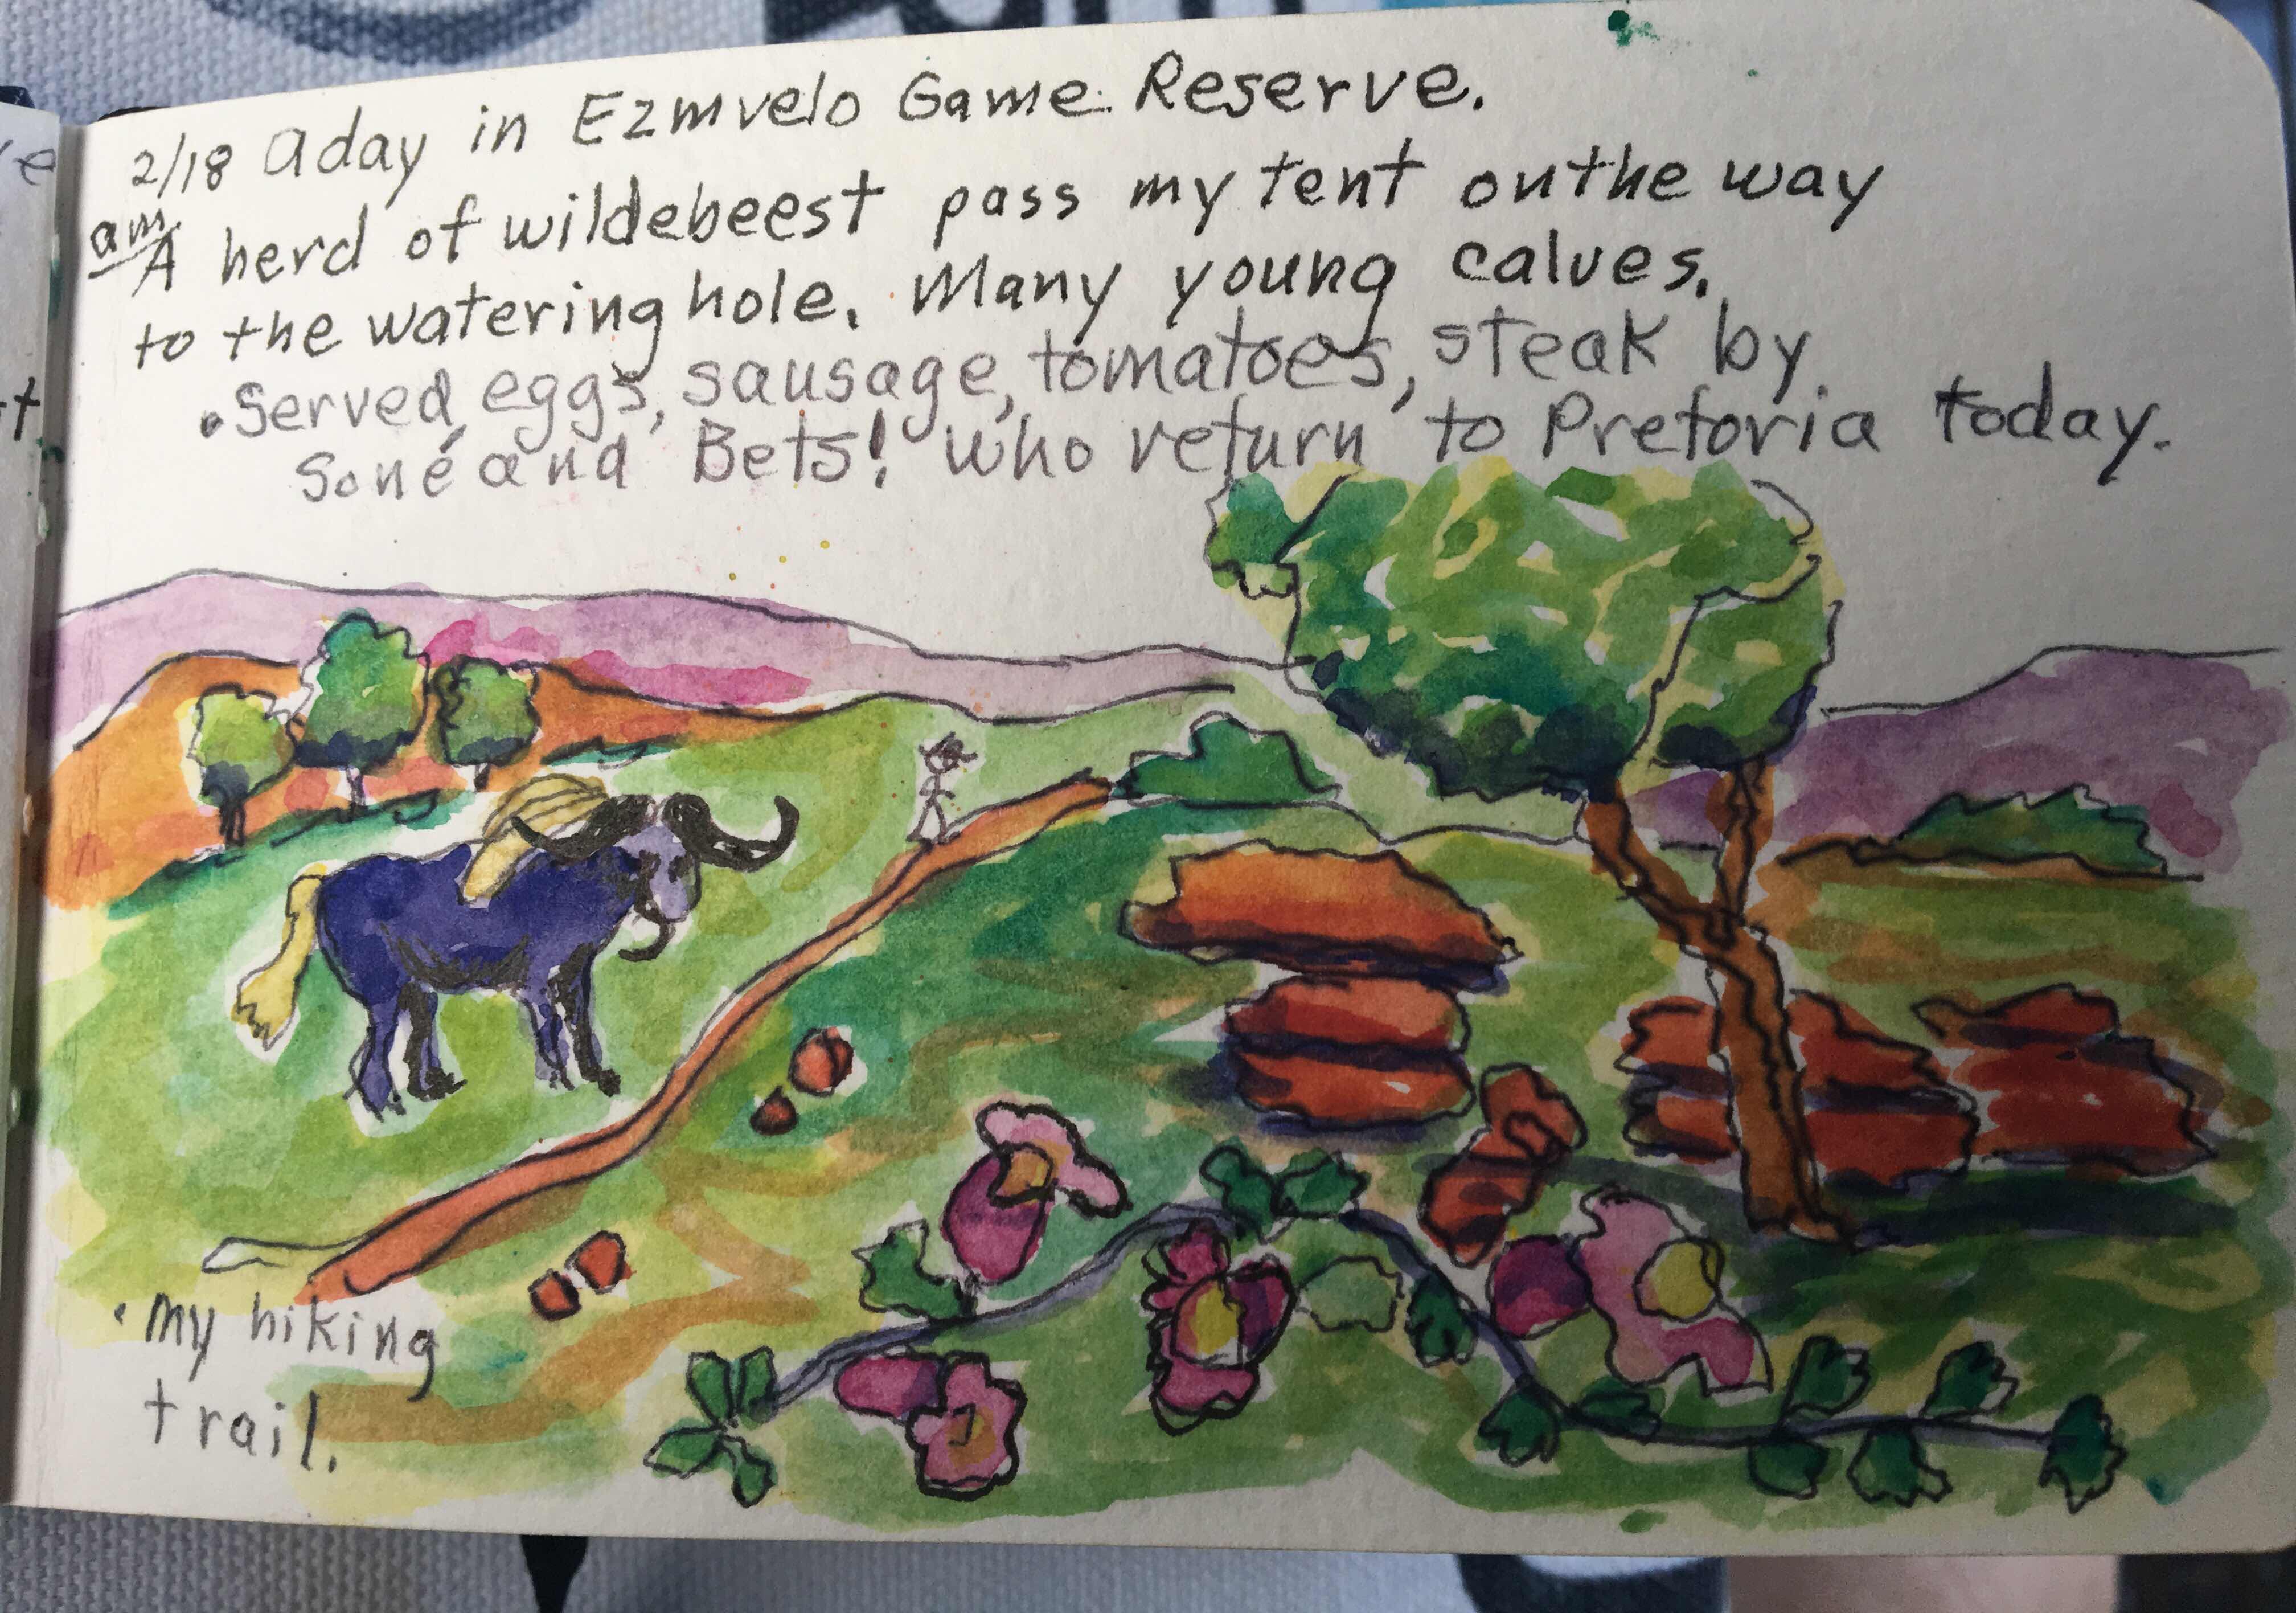 2/18 A day in Ezmvelo Game Reserve.
am A herd of wildebeest pass my tent on the way
to the watering hole. Many young calves.
• Served eggs, sausage, tomatoes, steak by
Soné and Bets! who return to Pretoria today.
• my hiking
trail.